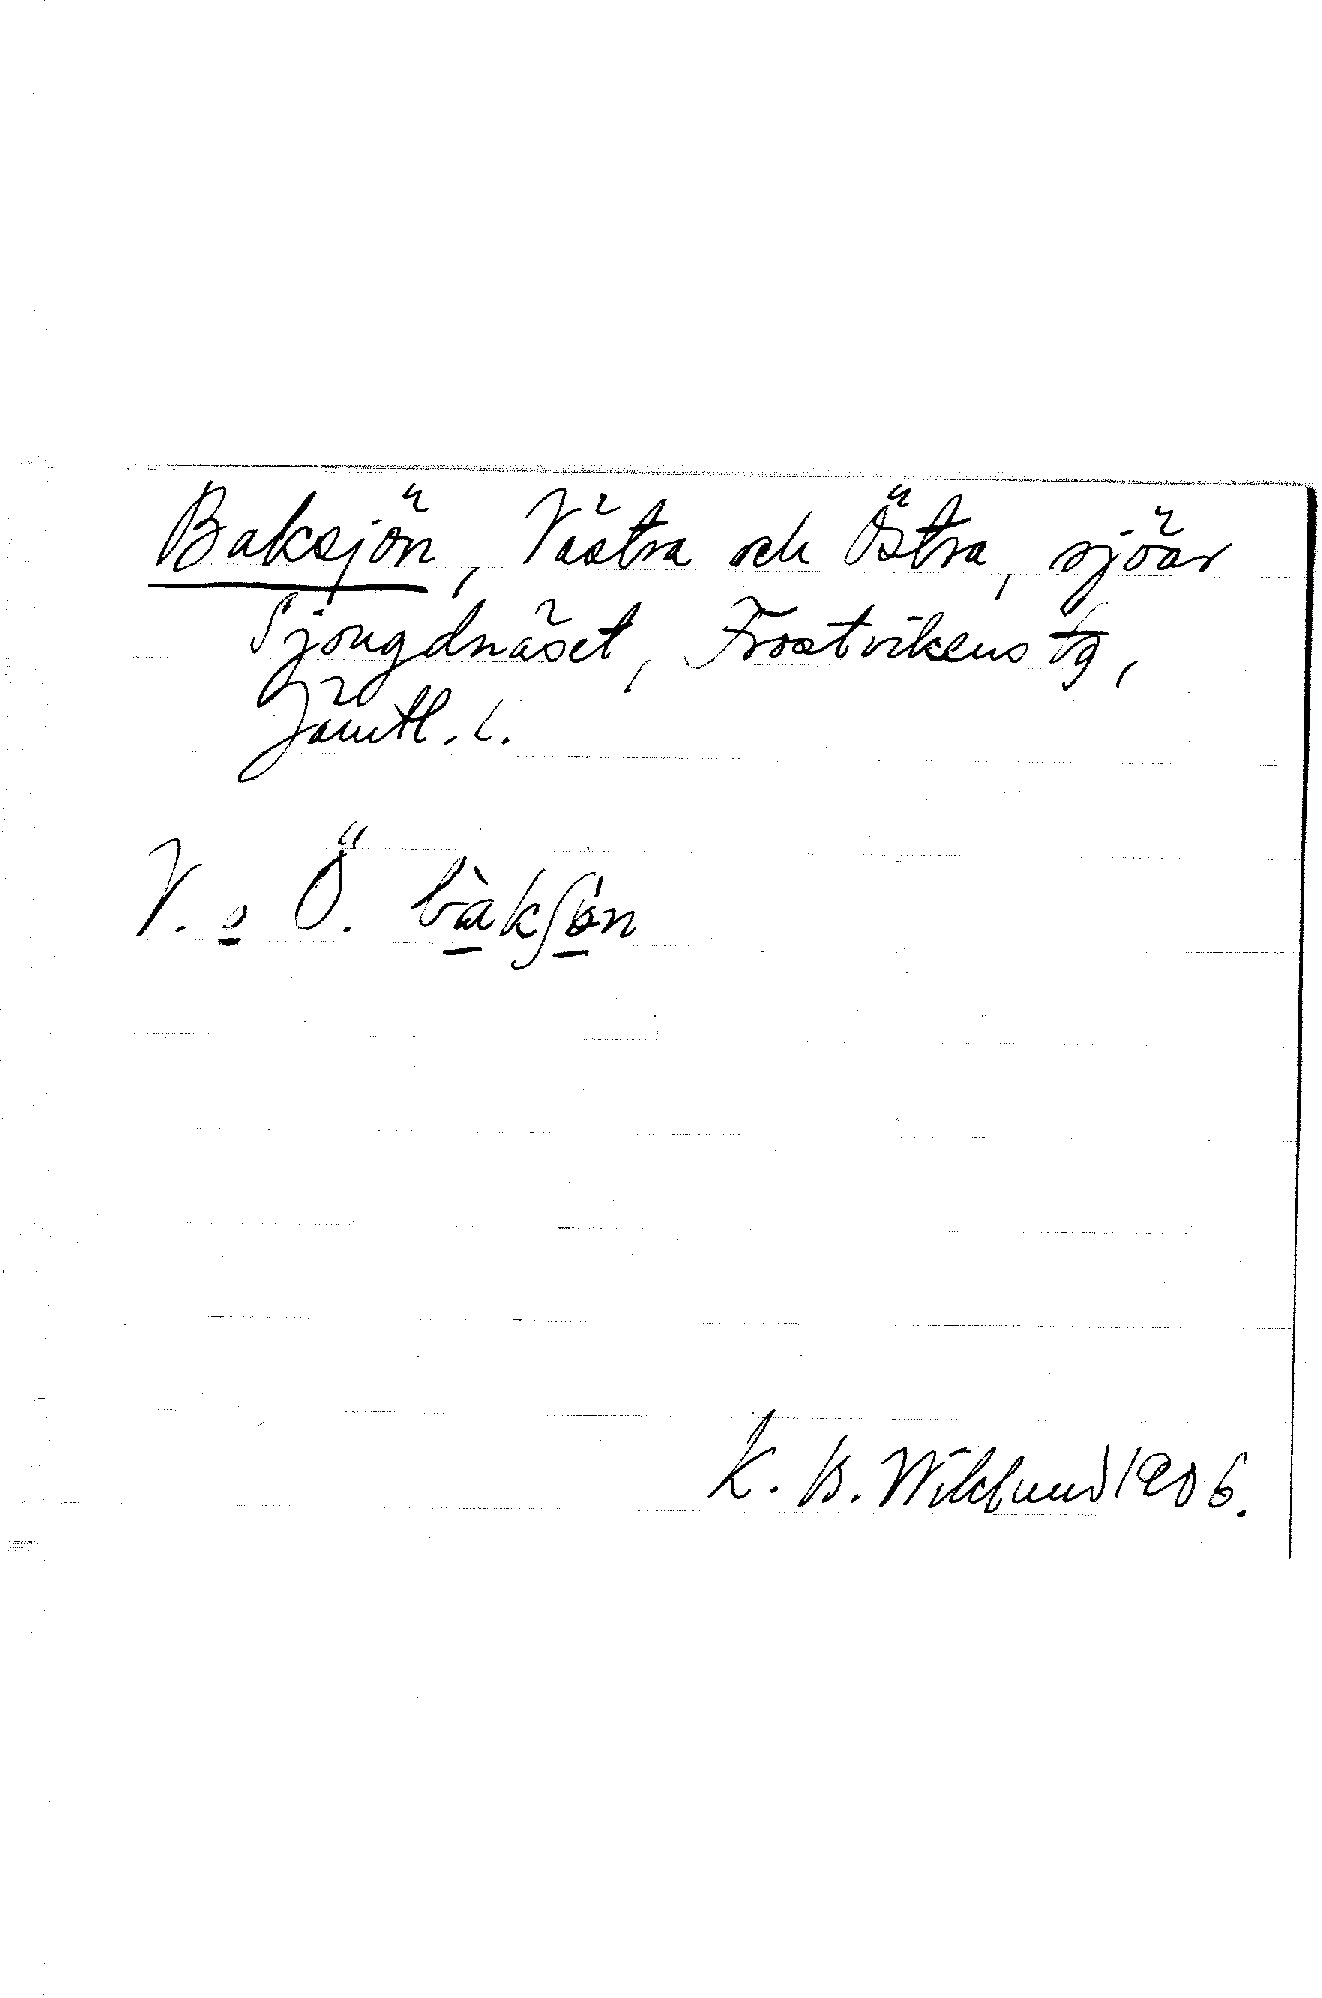 Baksjön, Västra och Östra, sjöar
Sjougdnäset, Frostvikens sg,
Jämtl. l.
V. o Ö. bàkʃön
K. B. Wiklund 1906.